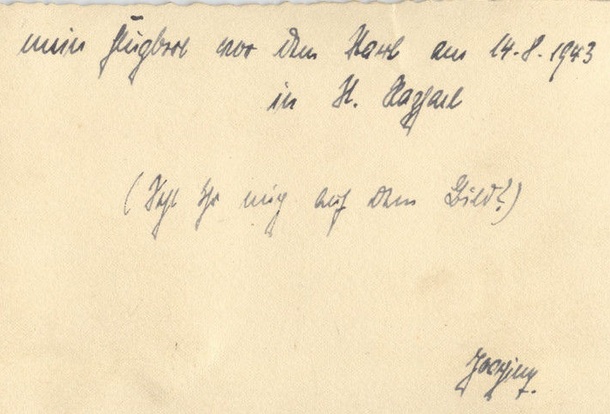 mein Flugboot vor dem Start am 14.8.1943
in St. Raphael
(Seht Ihr mich auf dem Bild?)